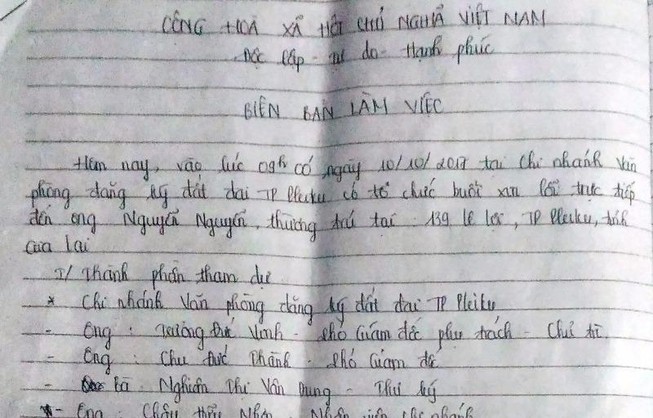 CÔNG HOÀ XÃ HỘI CHỦ NGHĨA VIỆT NAM
Độc lập - Tự do - Hạnh phúc
BIÊN BẢN LÀM VIỆC
Hôm nay, vào lúc 09h00, ngày 10/10/2017 tại Chi nhánh Văn
phòng đăng ký đất đai TP Pleiku có tổ chức buổi xin lỗi trực tiếp
đến ông Nguyễn Nguyễn, thường trú tại 139 Lê Lợi, TP Pleiku, tỉnh
Gia Lai
I/ Thành phần tham dự
* Chi nhánh Văn phòng đăng ký đất đai TP Pleiku
- Ông : Trương Vinh - Phó Giám đốc phụ trách - Chủ trì.
- Ông : Chu Đức Thành - Phó Giám đố
- Bà : Nghiêm Thị Vân Dung - Thư ký
- Ông : Châu Nhân viên chi nhánh